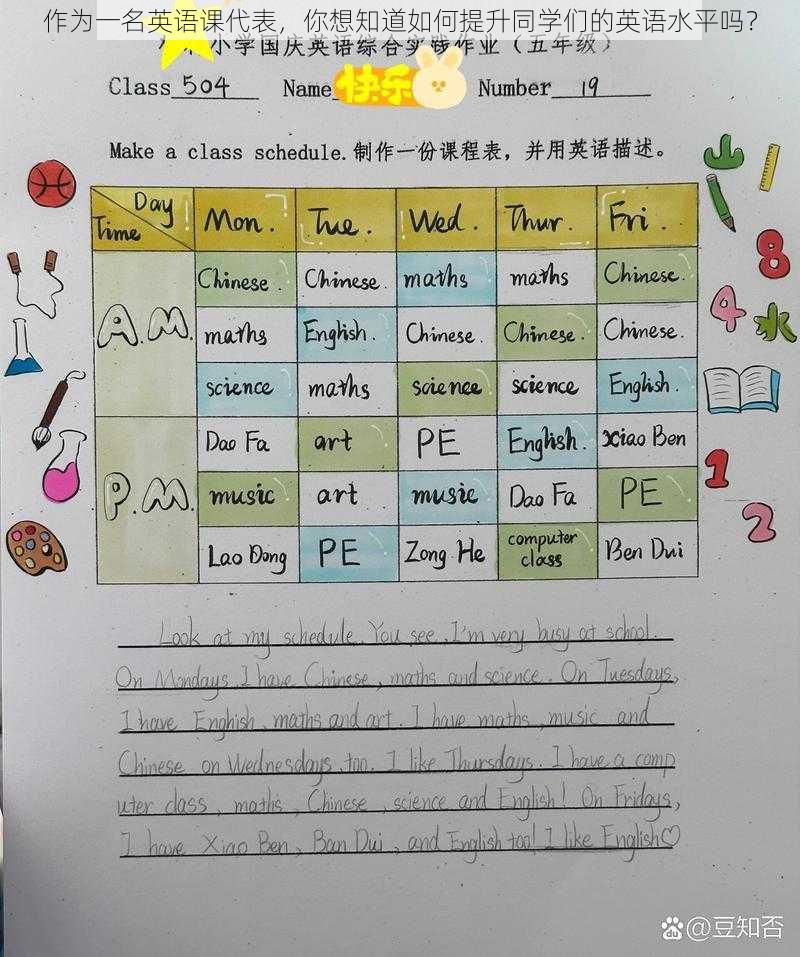 作为一名英语课代表，你想知道如何提升同学们的英语水平吗？
小学国庆英语综合实践作业（五年级）
Class 504 Name 快乐 Number 19
Make a class schedule.制作一份课程表，并用英语描述。
Day Time Mon. Tue. Wed. Thur. Fri.
A.M. Chinese. Chinese. maths maths Chinese.
maths English. Chinese. Chinese. Chinese.
science maths science science English.
P.M. Dao Fa art PE English. xiao Ben
music art music Dao Fa PE
Lao Dong PE Zong He computer class Ben Dui
山
8
4 水
1
2
Look at my schedule. You see, I'm very busy at school.
On Mondays, I have Chinese, maths and science. On Tuesdays,
I have Enghish, maths and art. I have maths, music and
Chinese on Wednesdays, too. I like Thursdays. I have a comp
uter class, maths, Chinese, science and English! On Fridays,
I have Xiao Ben, Ban Dui, and English too! I like English♡
Bai du @豆知否